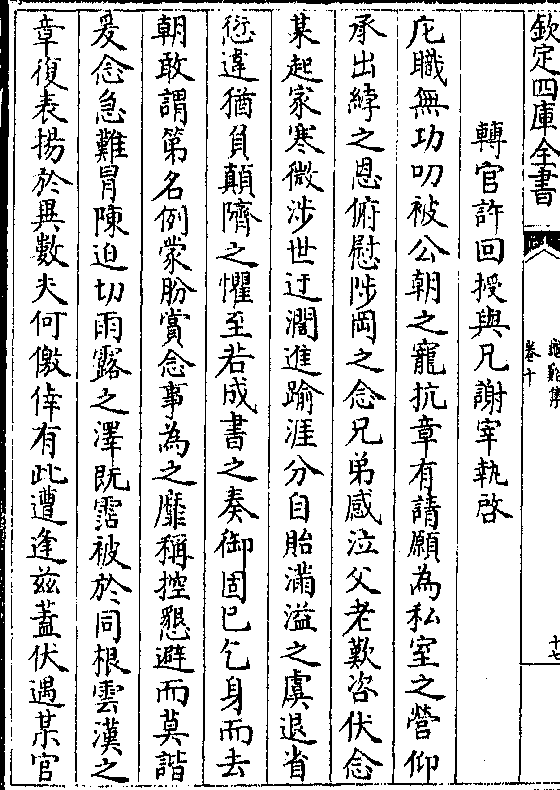 欽定四庫全書
卷十
十七
轉官許回授與兄謝宰執啓
庀職無功叨被公朝之寵抗章有請願為私室之營仰
承出綍之恩俯慰陟岡之念兄弟感泣父老歎咨伏念
某起家寒微涉世迂濶進踰涯分自貽滿溢之虞退省
愆違猶負顛隮之懼至若成書之奏御固已乞身而去
朝敢謂第名例蒙肦賞念事為之靡稱控懇避而莫諧
爰念急難冐陳迫切雨露之澤既霑被於同根雲漢之
章復表揚於異數夫何儌倖有此遭逢兹蓋伏遇某官